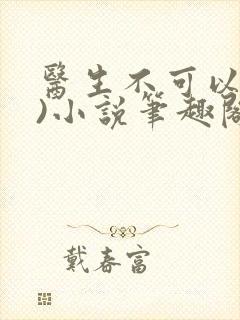 醫生不可以
)小說筆趣閣
戴春富